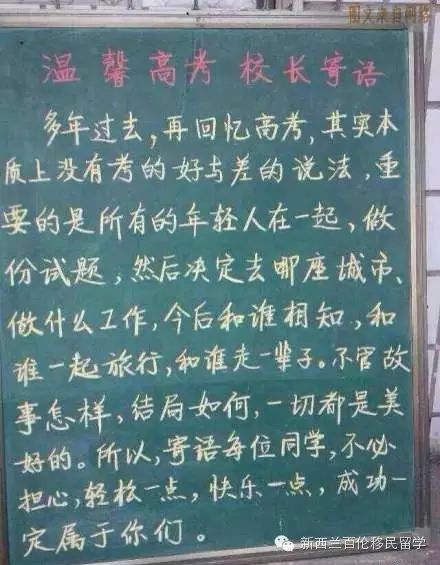 图文来自网络
温馨高考 校长寄语
多年过去,再回忆高考,其实本
质上没有考的好与差的说法,重
要的是所有的年轻人在一起,做
份试题,然后决定去哪座城市、
做什么工作,今后和谁相知,和
谁一起旅行,和谁走一辈子。不管故
事怎样,结局如何,一切都是美
好的。所以,寄语每位同学,不必
担心,轻松一点,快乐一点,成功一
定属于你们。
新西兰百伦移民留学